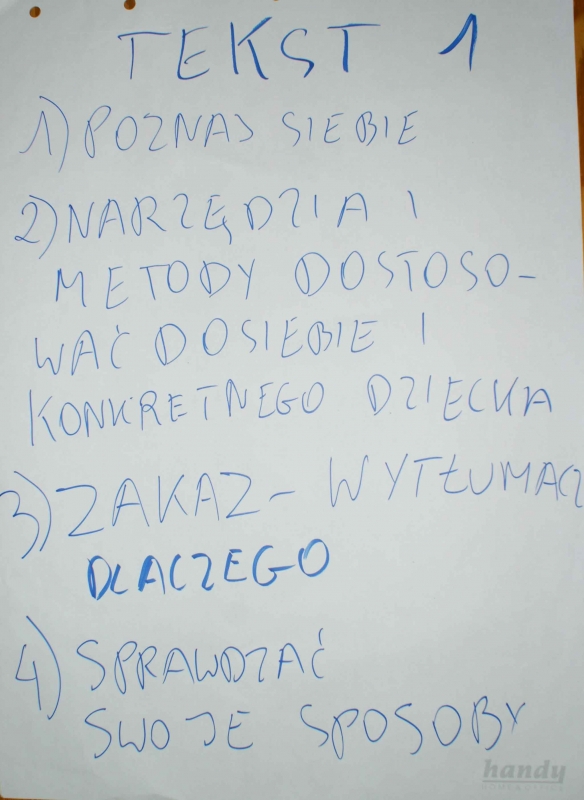 TEKST 1
1) POZNAJ SIEBIE
2) NARZĘDZIA I
METODY DOSTOSO-
WAĆ DO SIEBIE I
KONKRETNEGO DZIECKA
3) ZAKAZ - WYTŁUMACZ
DLACZEGO
4) SPRAWDZAĆ
SWOJE SPOSOBY
handy